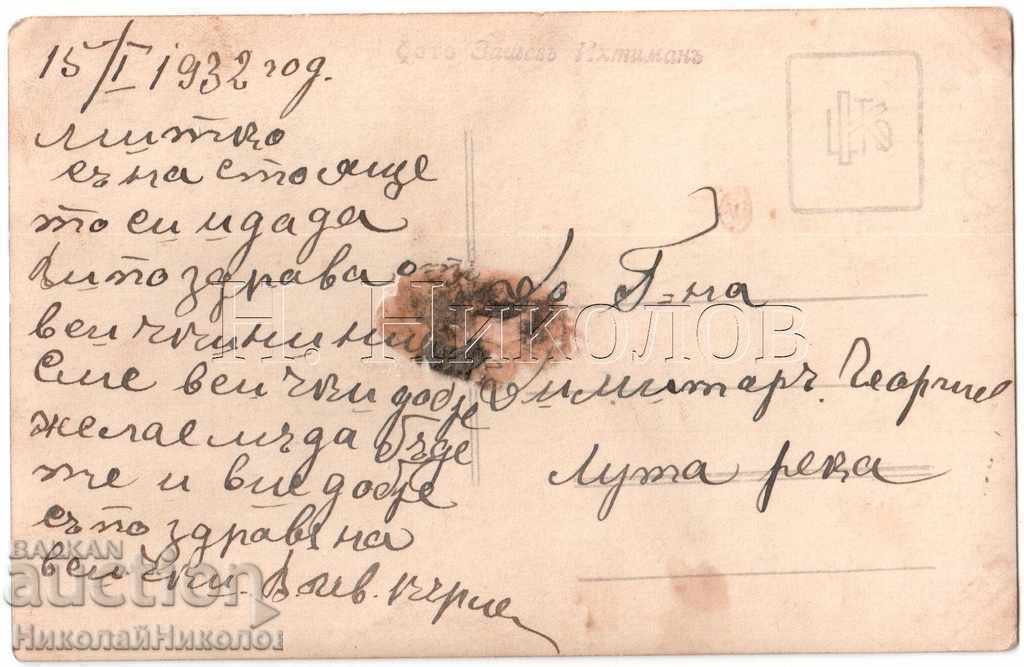 Фото Зашевъ Ихтиманъ
15/I 1932 год.
Митко
съ на стояще
то си идада
Випоздрава от
веичкинини
Сме веички добре
желаемъ да бъде
те и вие добре
съ поздрав на
веички.
До
Г-на
Димитаръ Георгиев
Лута река
Н. Николов
BALKAN
auction
НиколайНиколов